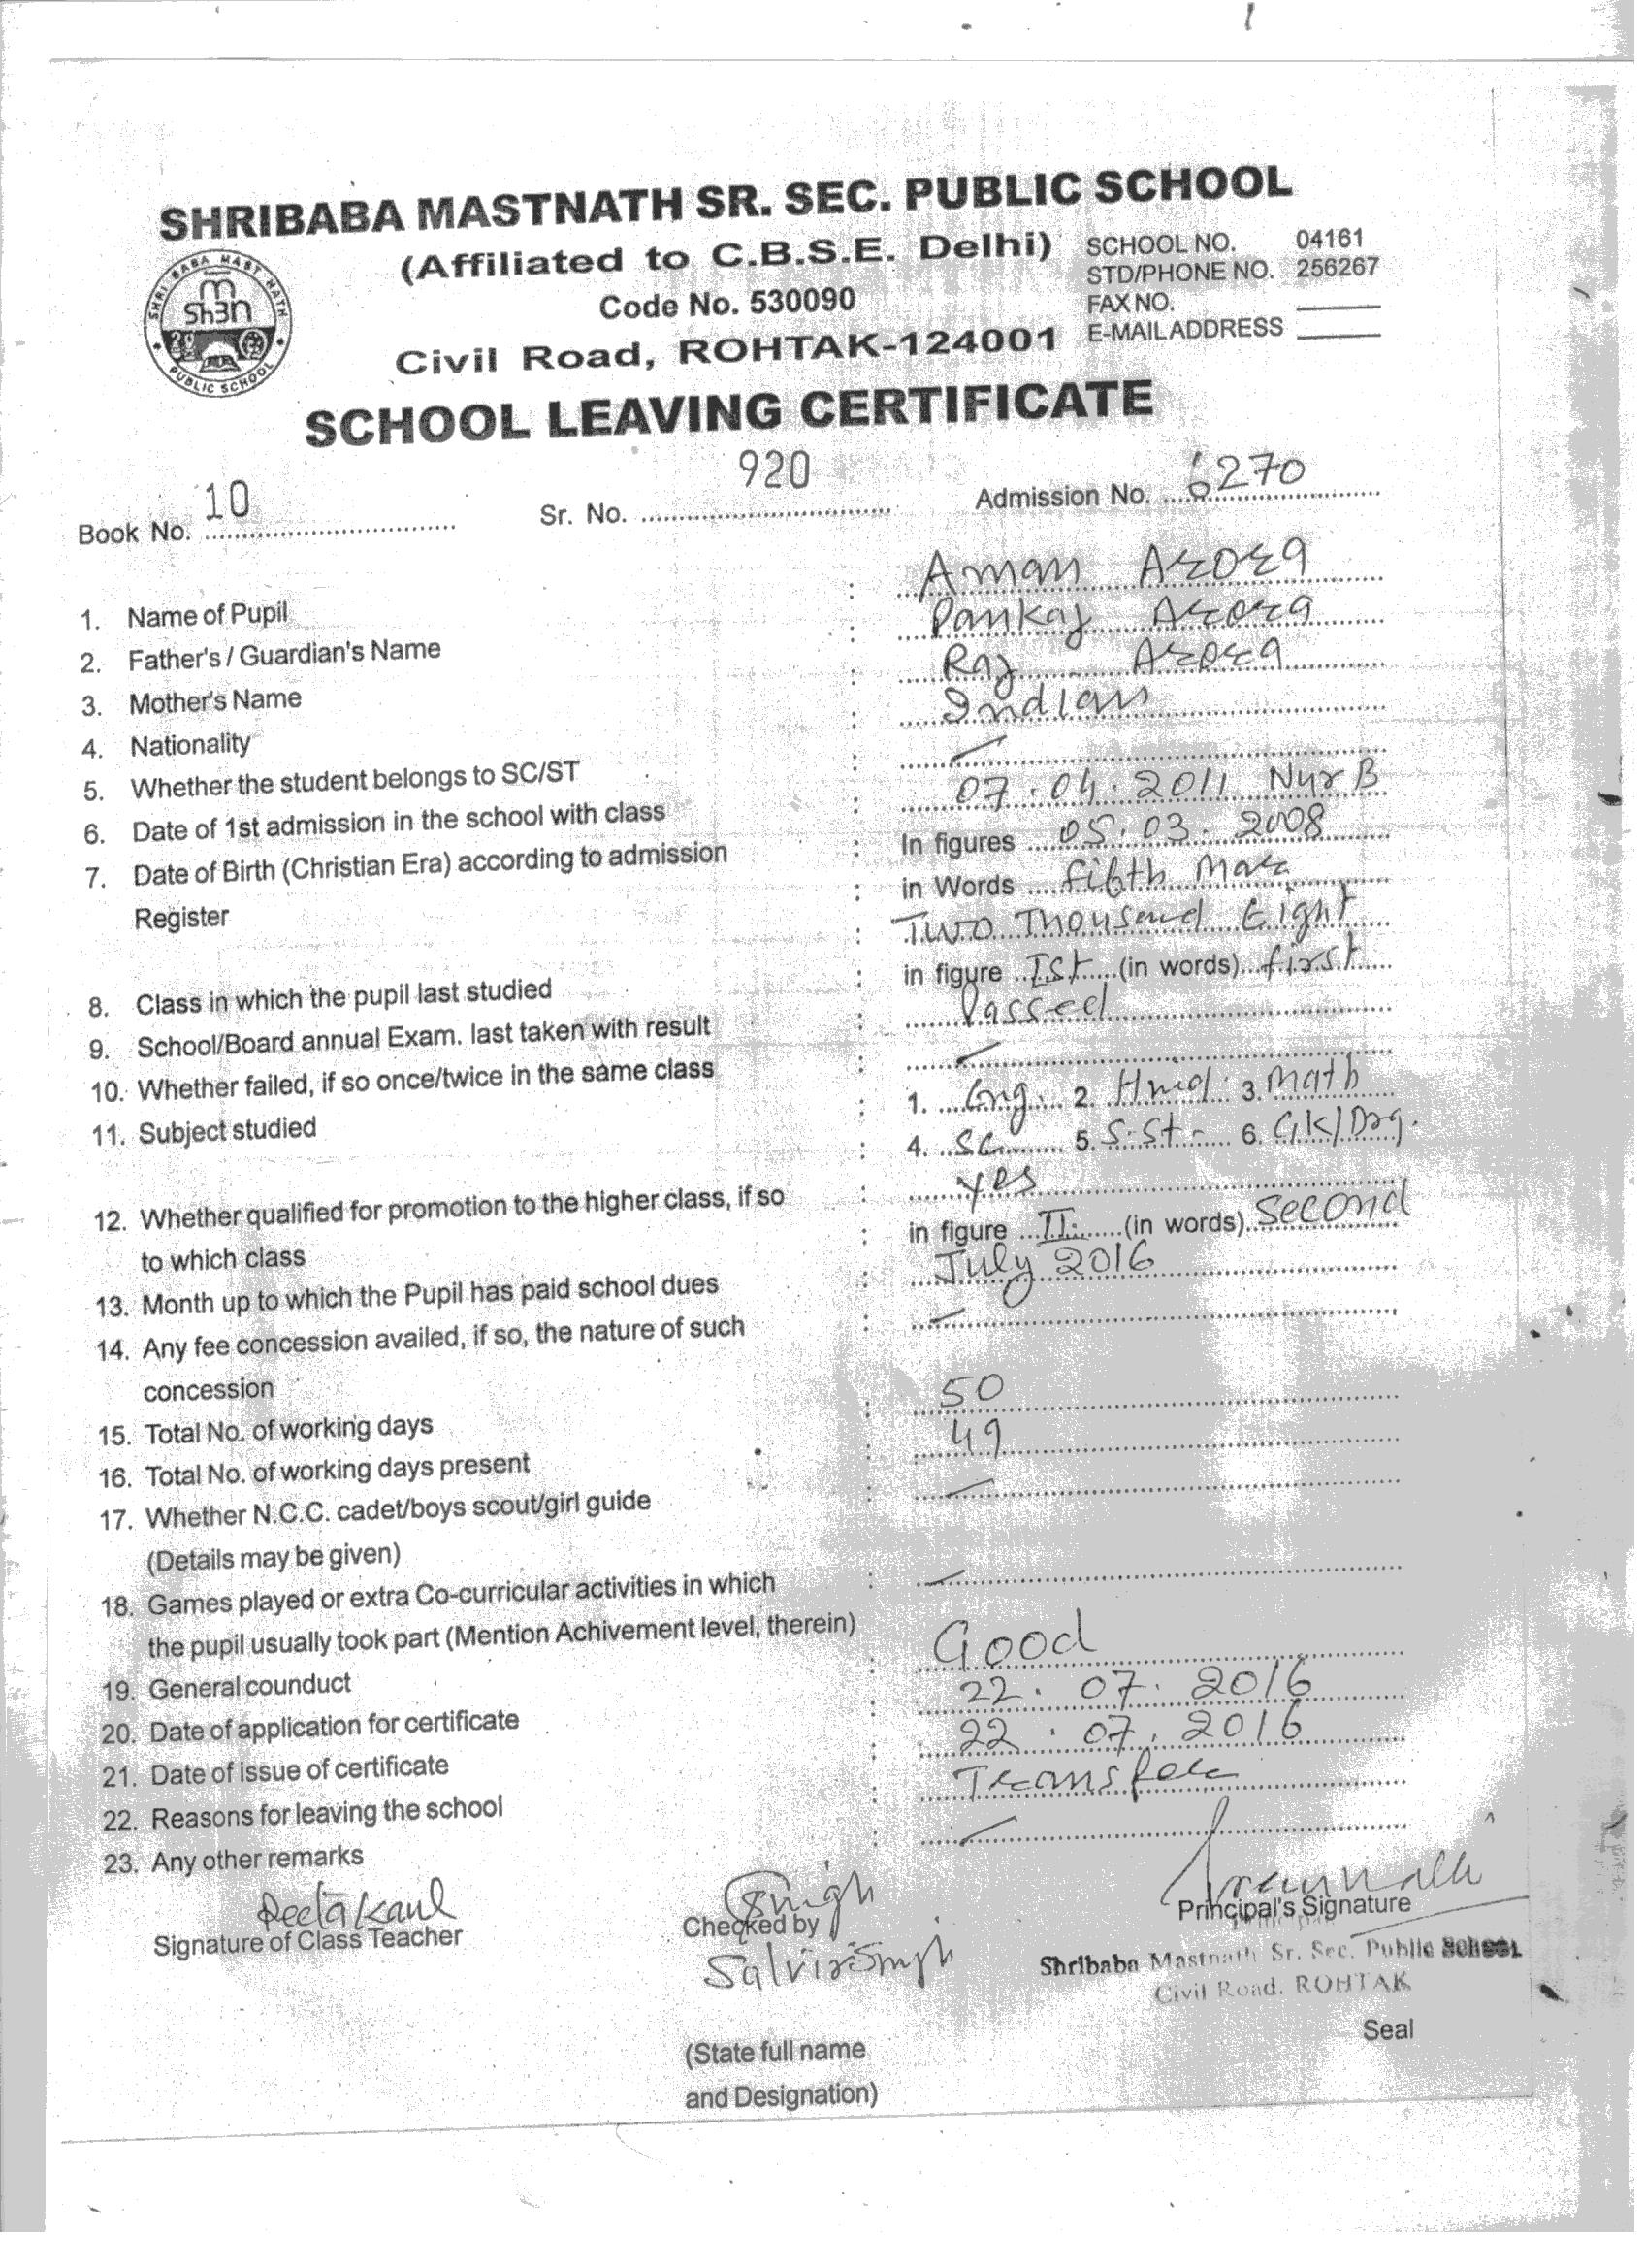 SHRIBABA MASTNATH SR. SEC. PUBLIC SCHOOL
(Affiliated to C.B.S.E. Delhi)
SCHOOL NO. 04161
STD/PHONE NO. 256267
Code No. 530090
FAX NO.
E-MAIL ADDRESS
Civil Road, ROHTAK-124001
SHRI BABA MAST NATH
PUBLIC SCHOOL
SCHOOL LEAVING CERTIFICATE
Book No. 10 Sr. No. 920 Admission No. 6270
1. Name of Pupil : Aman Arora
2. Father's / Guardian's Name : Pankaj Arora
3. Mother's Name : Raj Arora
4. Nationality : Indian
5. Whether the student belongs to SC/ST :
6. Date of 1st admission in the school with class : 07.04.2011 Nur B
7. Date of Birth (Christian Era) according to admission : In figures 05.03.2008
Register : in Words fifth Mar
: Two Thousand Eight
8. Class in which the pupil last studied : in figure Ist (in words) first
9. School/Board annual Exam. last taken with result : Passed
10. Whether failed, if so once/twice in the same class :
11. Subject studied : 1. Eng. 2. Hind. 3. Math
: 4. Sc. 5. S.St. 6. GK/Drg.
12. Whether qualified for promotion to the higher class, if so : Yes
to which class : in figure II. (in words) Second
13. Month up to which the Pupil has paid school dues : July 2016
14. Any fee concession availed, if so, the nature of such :
concession
15. Total No. of working days : 50
16. Total No. of working days present : 49
17. Whether N.C.C. cadet/boys scout/girl guide :
(Details may be given)
18. Games played or extra Co-curricular activities in which :
the pupil usually took part (Mention Achivement level, therein)
19. General counduct : Good
20. Date of application for certificate : 22.07.2016
21. Date of issue of certificate : 22.07.2016
22. Reasons for leaving the school : Transfer
23. Any other remarks :
Reeta Kaul
Signature of Class Teacher
Singh
Checked by
Principal's Signature
Principal
Shribaba Mastnath Sr. Sec. Public School
Civil Road, ROHTAK
Seal
(State full name
and Designation)